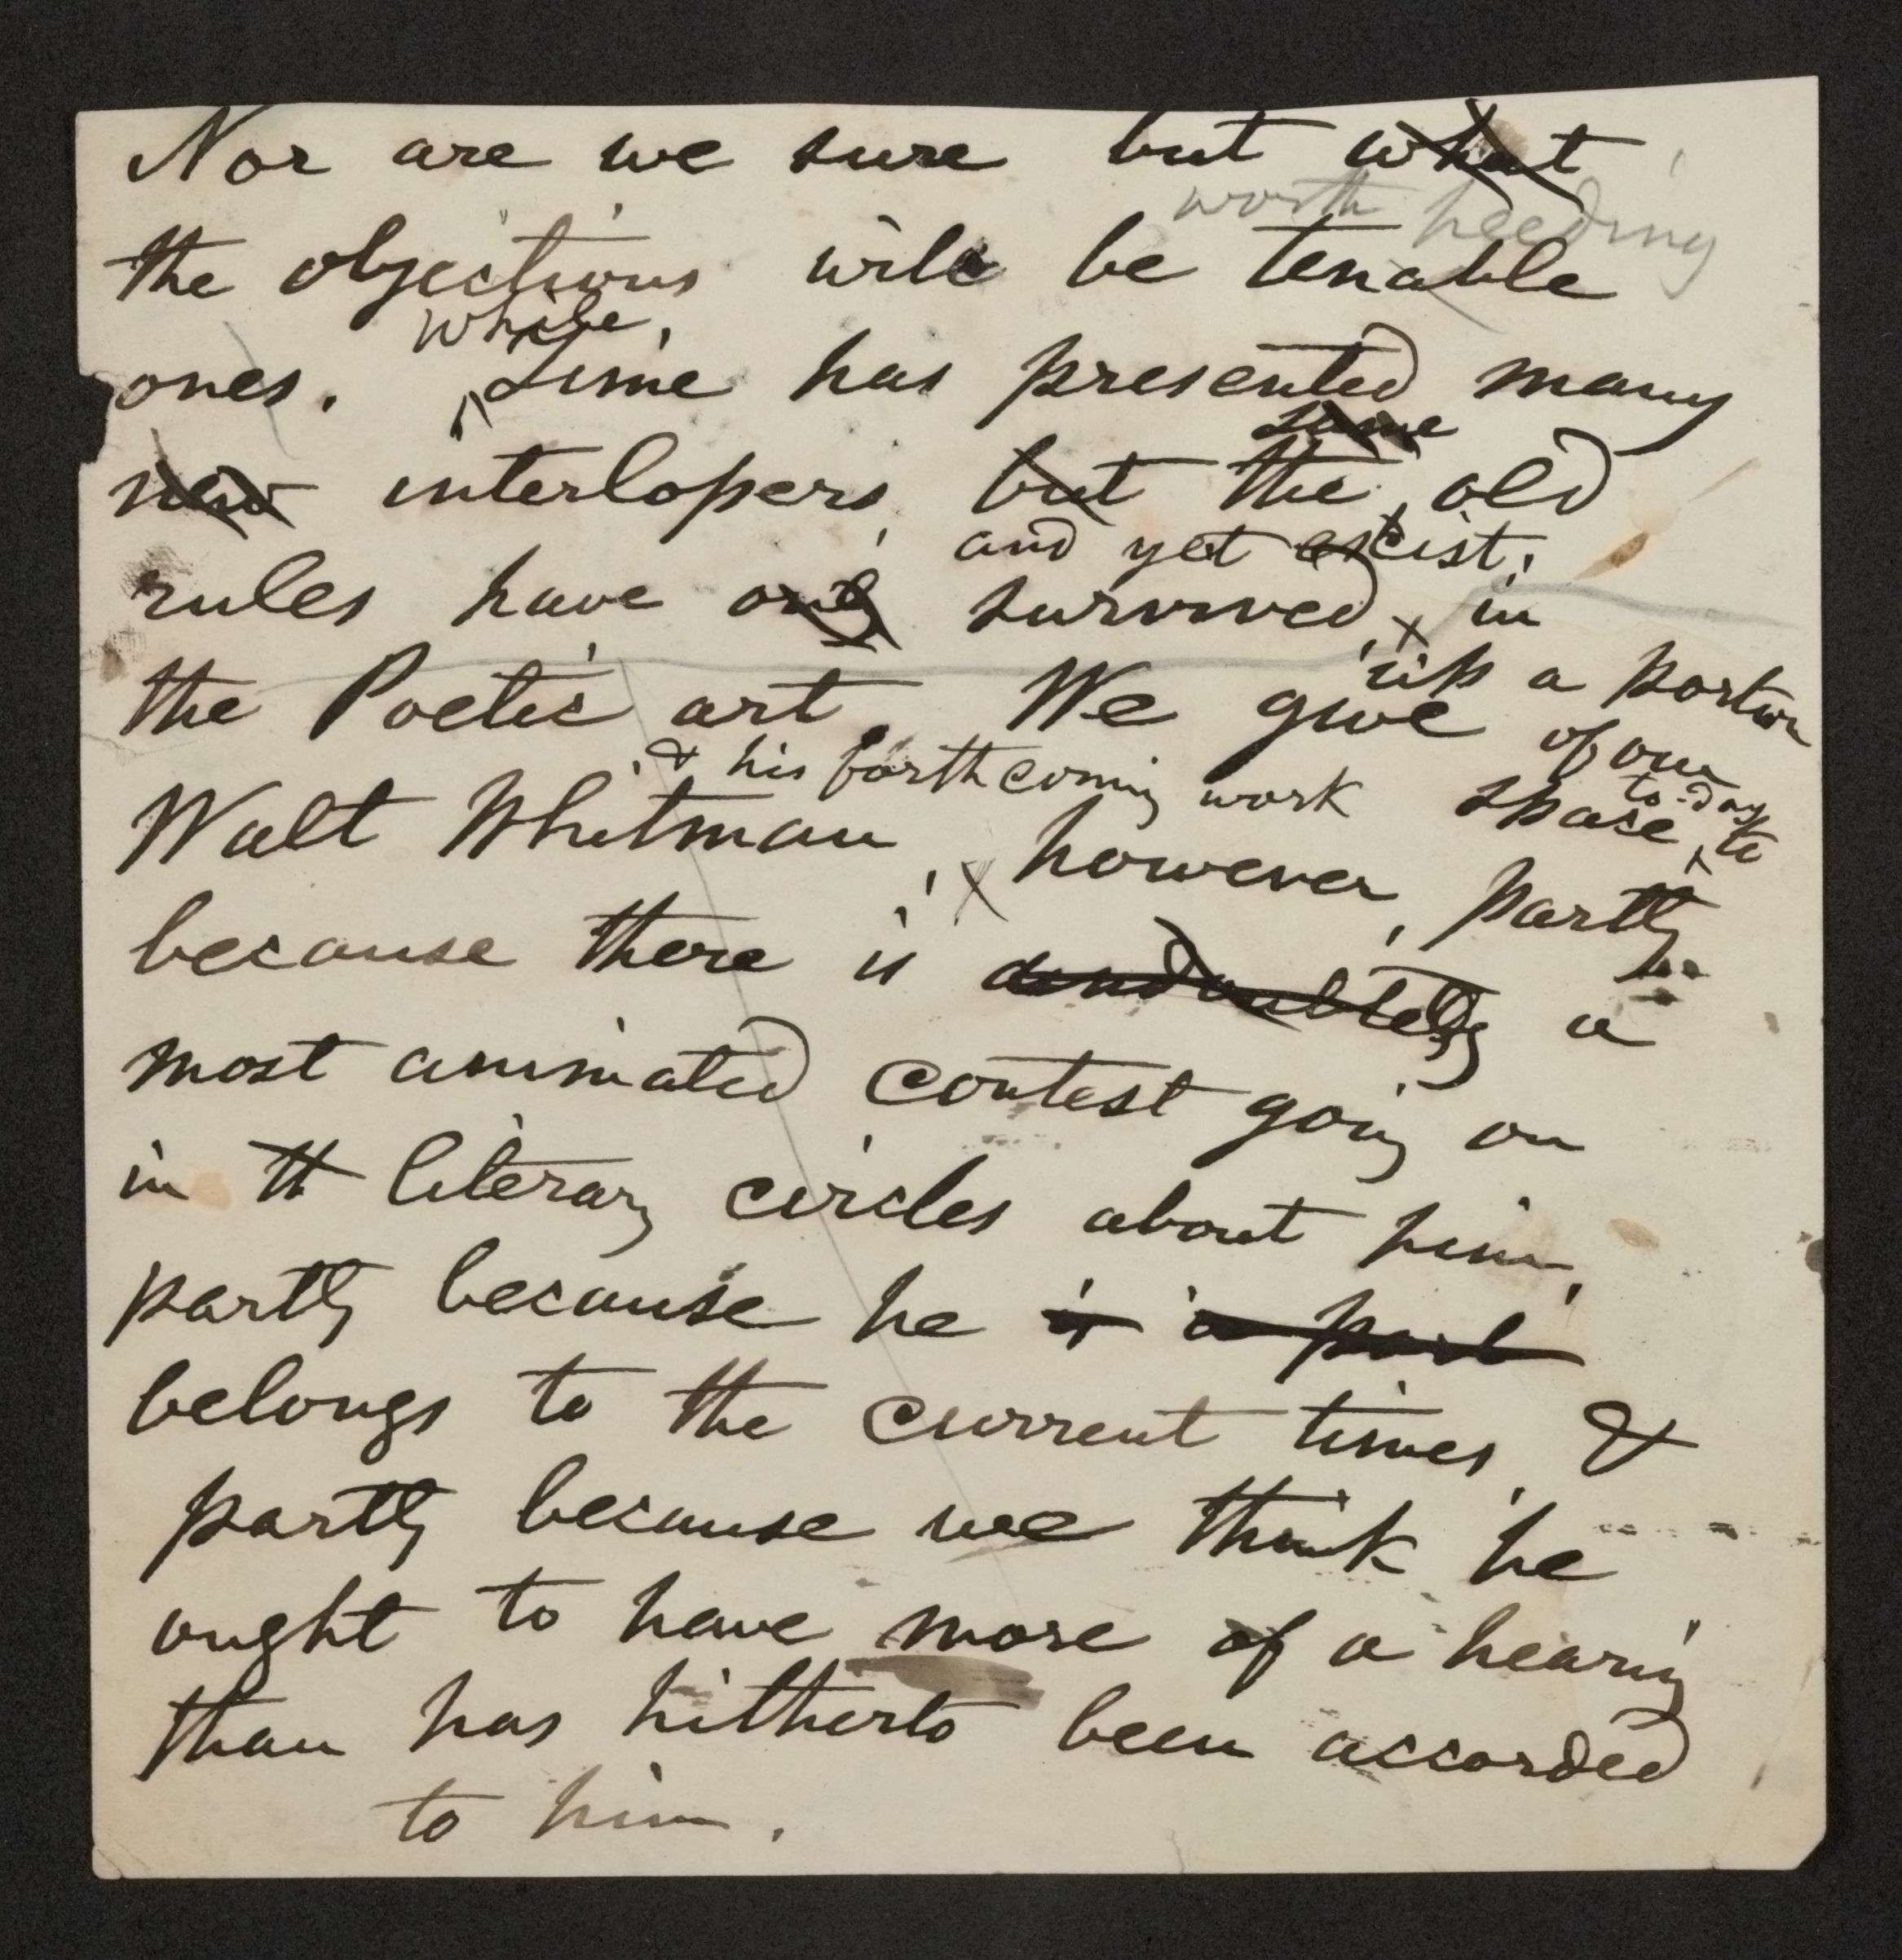 Nor are we sure but what
worth heeding
the objections will be tenable
while
ones. Time has presented many
some
new interlopers, but the old
and yet exist,
rules have survived, in
the Poetic art. We give up a portion
of our
& his forthcoming work space to-day to
Walt Whitman, however, partly
because there is undoubtedly a
most animated contest going on
in th literary circles about him,
partly because he is a part
belongs to the current times, &
partly because we think he
ought to have more of a hearing
than has hitherto been accorded
to him.